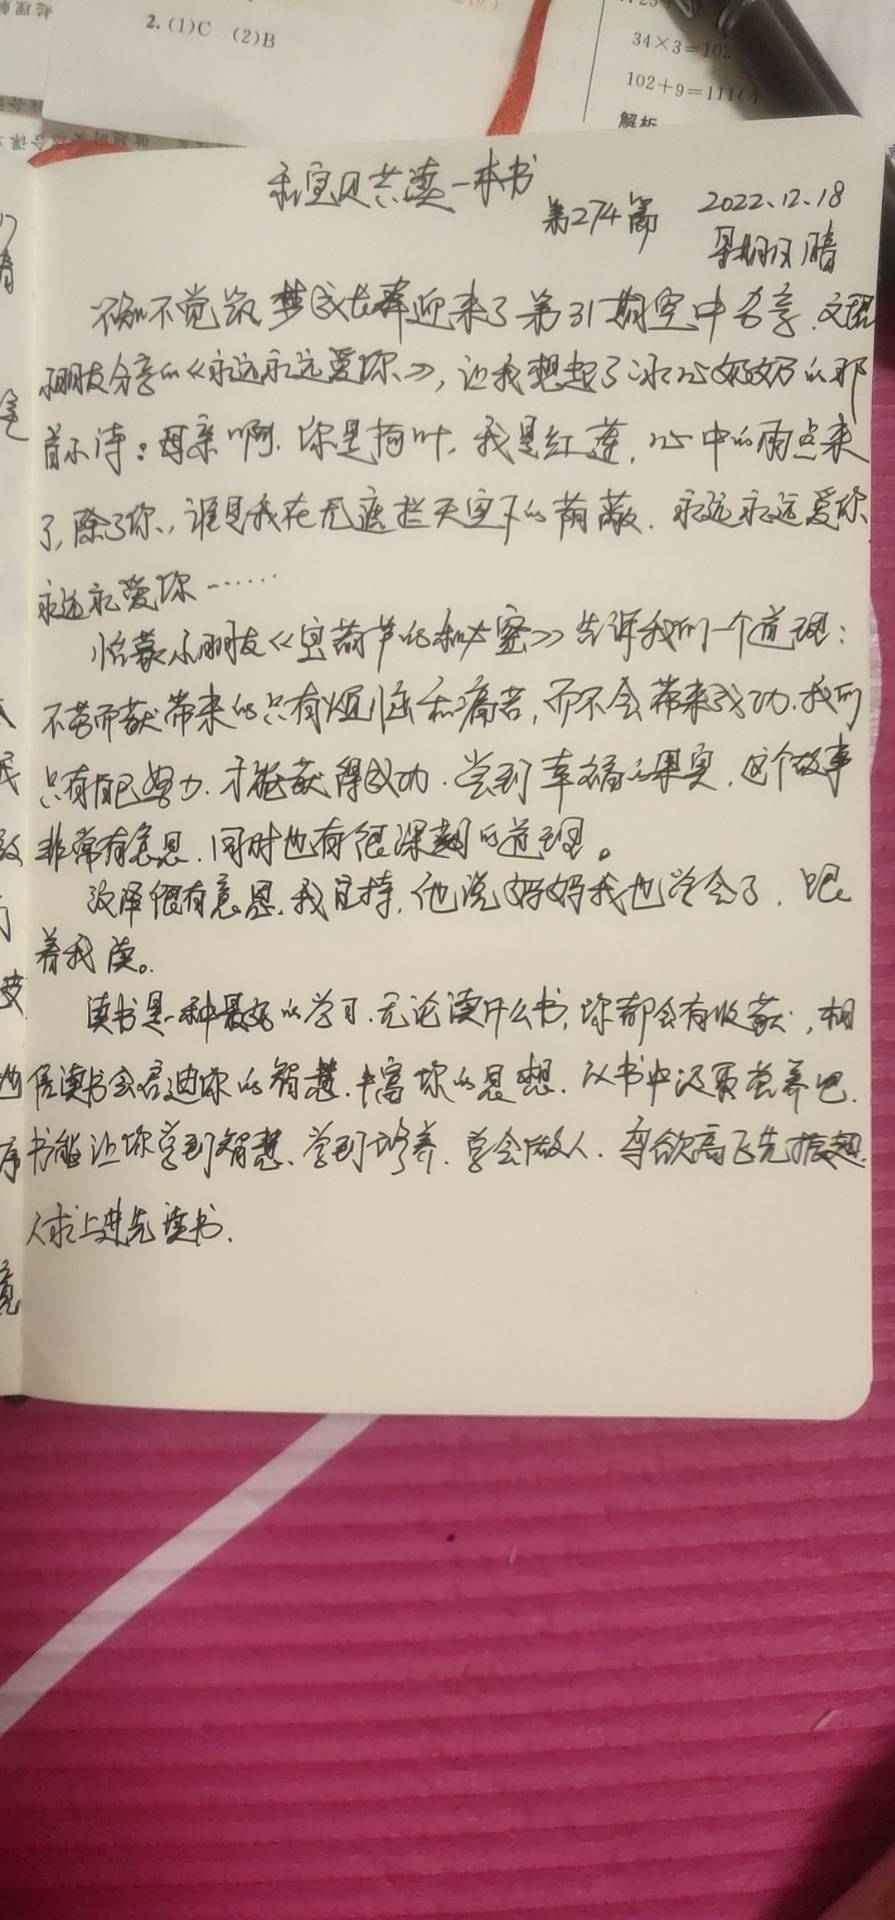 2. (1)C (2)B
34×3=102
102+9=111(
解析
和宝贝共读一本书
第274篇 2022.12.18
星期日 晴
不知不觉筑梦成长 迎来了第31期空中分享.文
朋友分享的《永远永远爱你》,让我想起了冰心奶奶的那
首小诗:母亲啊.你是荷叶,我是红莲,心中的雨点来
了,除了你,,谁是我在无遮拦天空下的荫蔽.永远永远爱你
永远永爱你……
怡蒙小朋友《宝葫芦的秘密》告诉我们一个道理:
不劳而获带来的只有烦恼和痛苦,而不会带来成功.我们
只有自己努力.才能获得成功.尝到幸福的果实.这个故事
非常有意思.同时也有很深刻的道理。
很有意思.我主持.他说妈妈我也学会了.跟
着我读。
读书是一种最好的学习.无论读什么书,你都会有收获,相
信读书会启迪你的智慧.丰富你的思想.从书中汲取营养吧.
书能让你学到智慧、学到修养.学会做人.鸟欲高飞先振翅.
人求上进先读书.